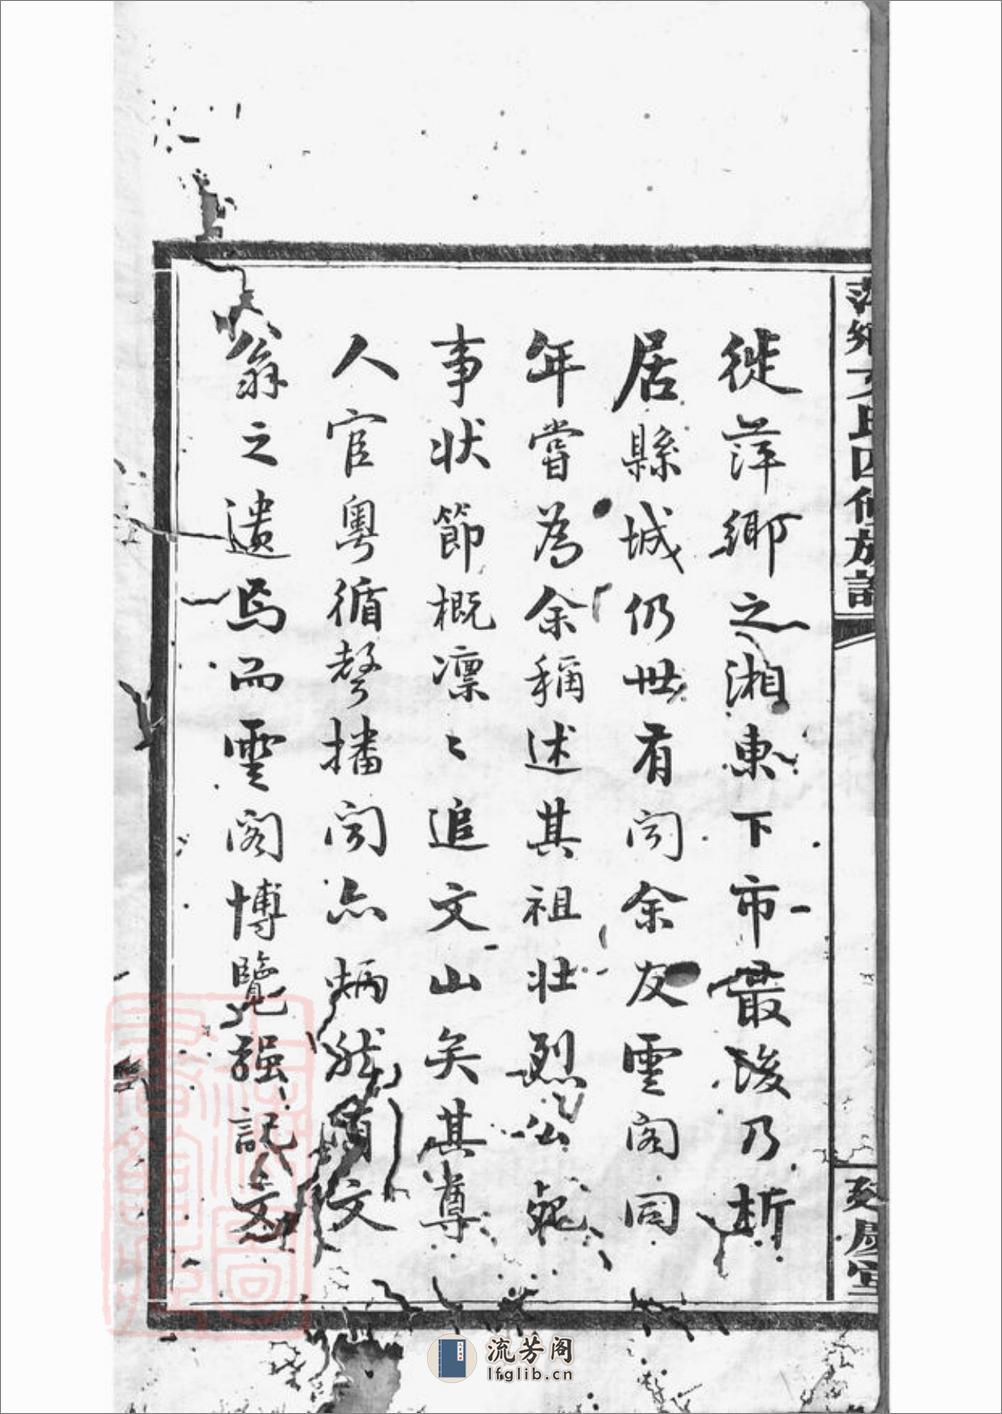 萍鄉文氏四修族譜
延慶堂
徙萍鄉之湘東下市最後乃析
居縣城仍世有聞余友雲閣同
年嘗為余稱述其祖壯烈公死
事狀節概凜〻追文山矣其尊
人官粵循聲播聞亦炳然有文
翁之遺焉而雲閣博覽強記文
流芳阁
lfglib.cn